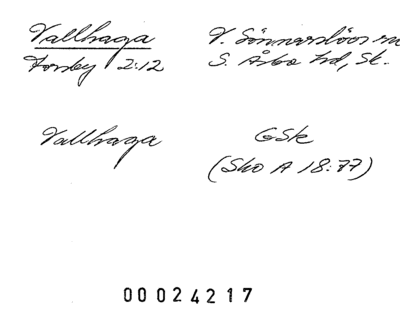 Vallhaga V. Sönnarslövs
Forsby 2:12 S. Åsbo hd, Sk.
Vallhaga GSk
(Sko A 18:77)
00024217